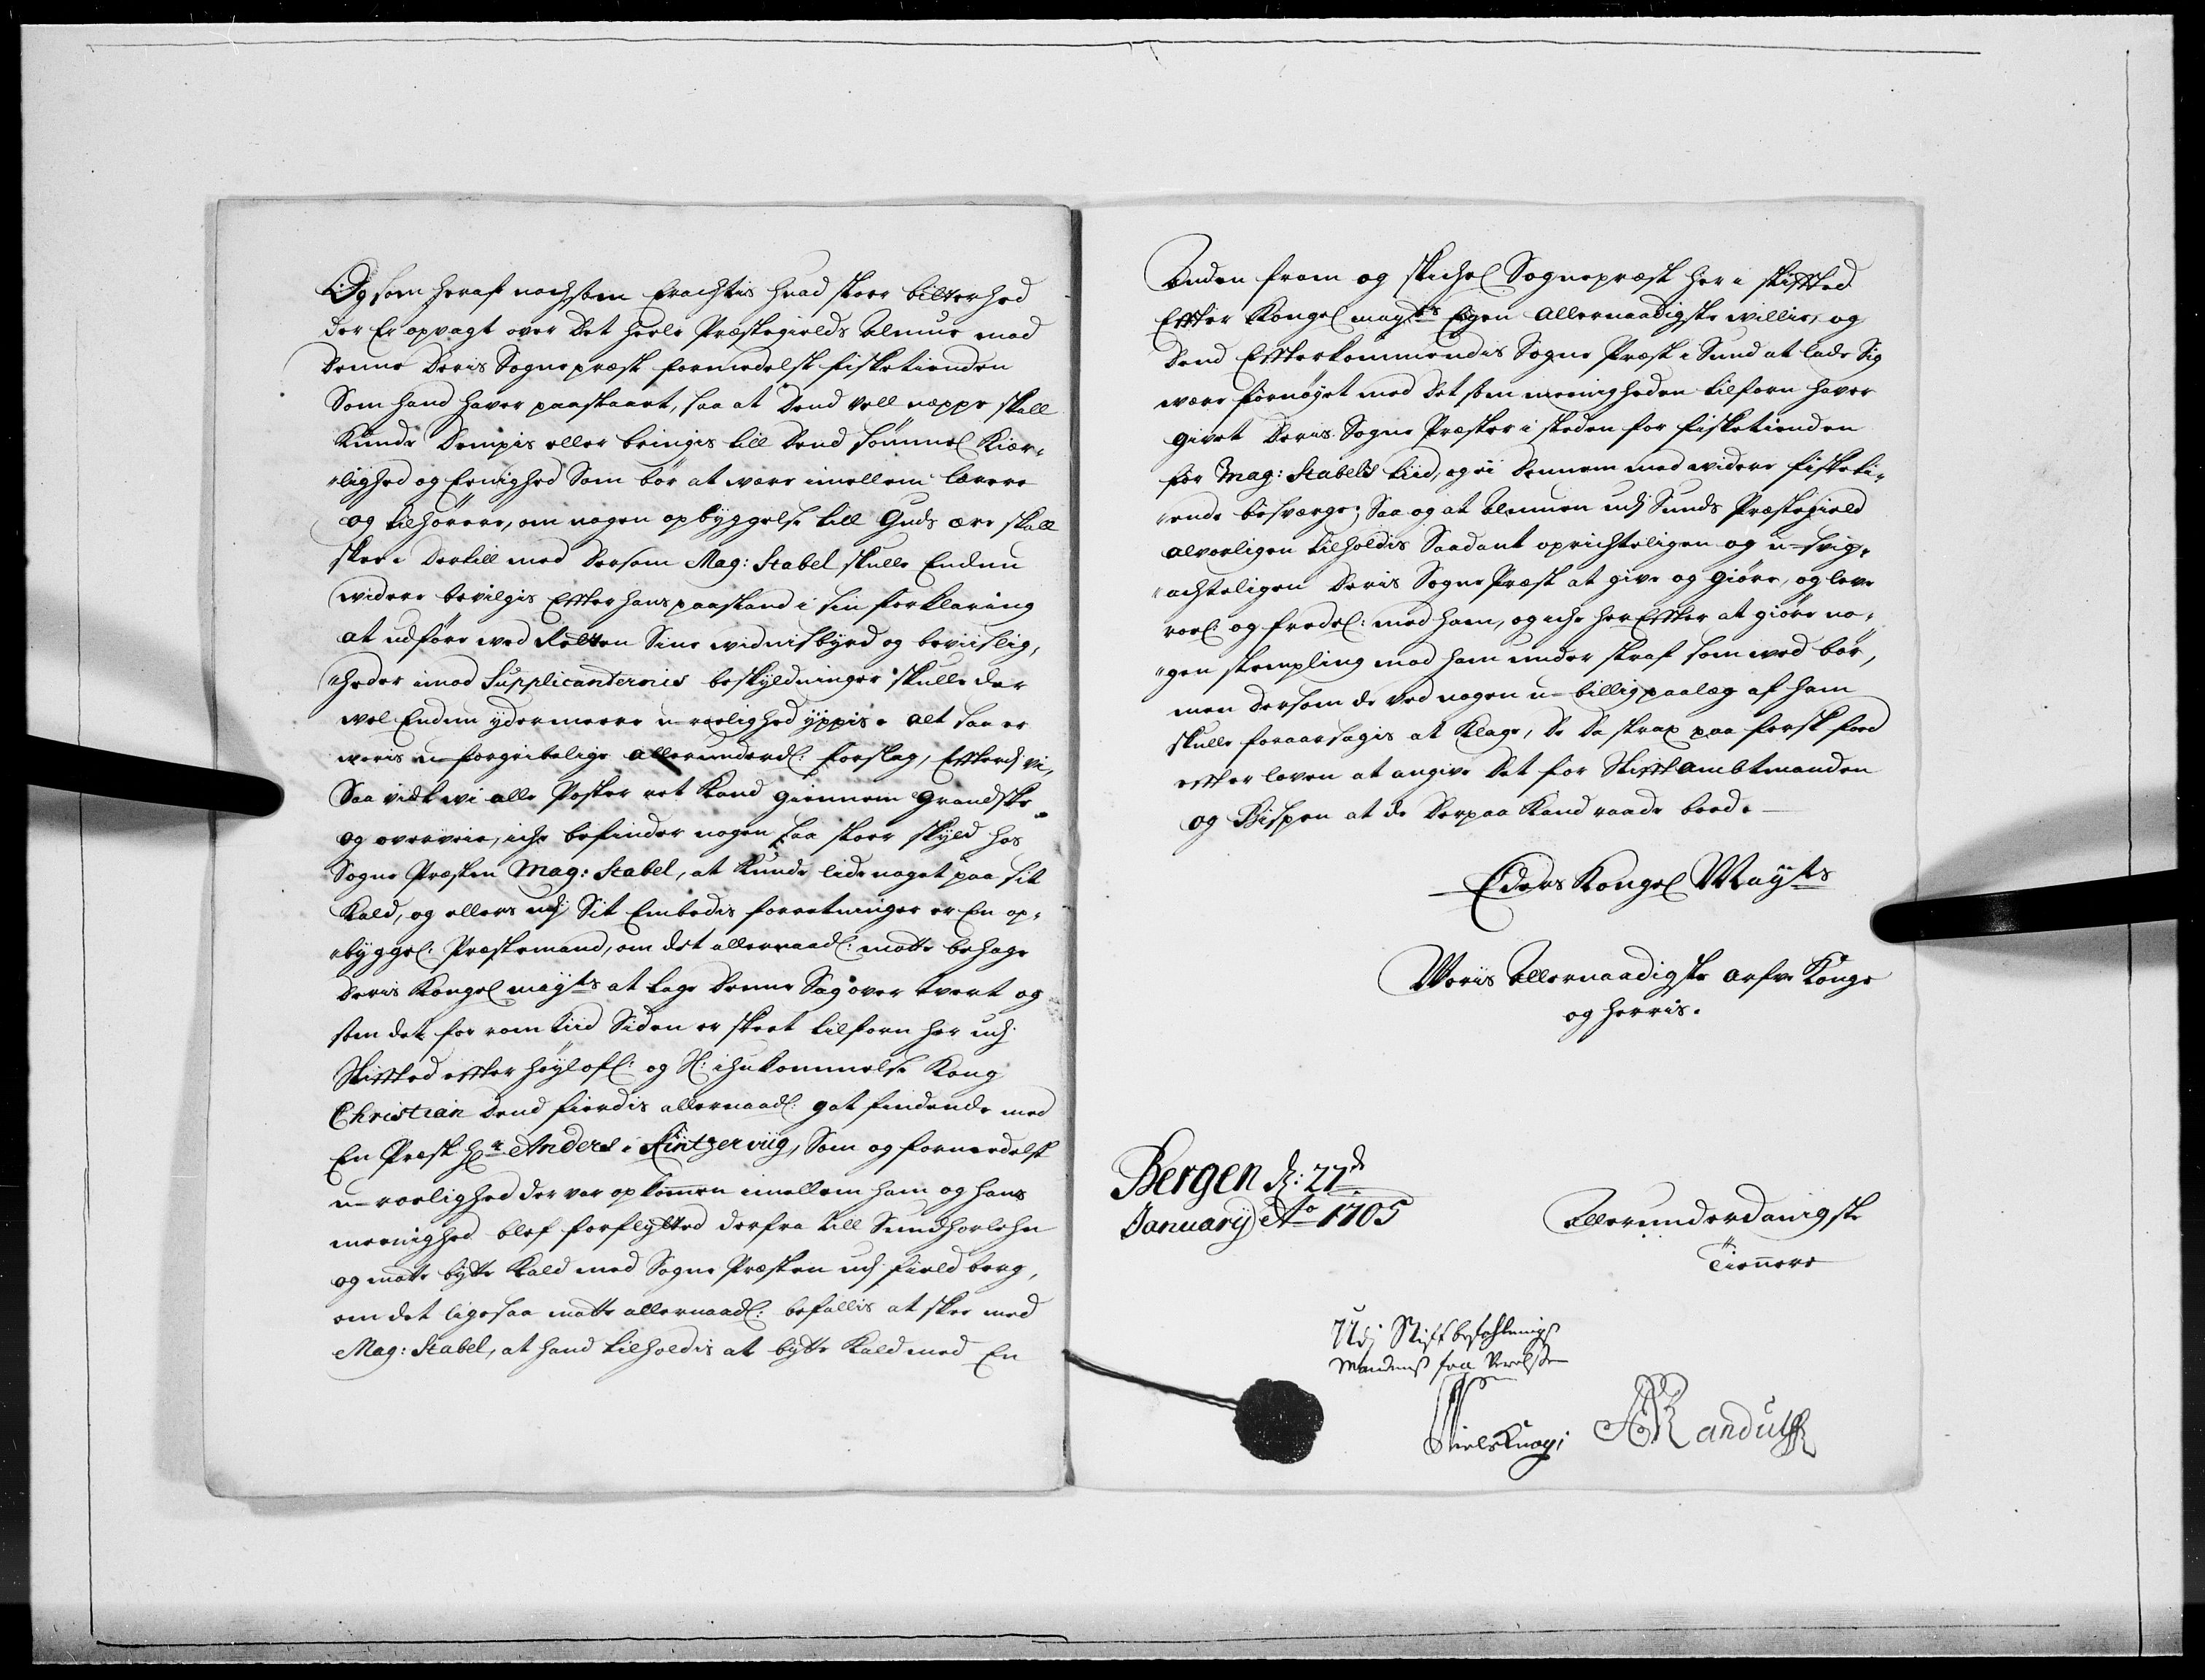 Og som heraf nochsom Erachtis hvad stoer bitterhed
der Er opvagt over det heele Præstegields Almue mod
denne deris Sognepræst formedelst fisketienden
Som hand haver paastaaet, saa at dend vell neppe skall
kunde dempis eller bringis till dend sömmel Kiær„
„lighed og Eenighed Som bör at være imellem lærere
og tilhörere, om nogen opbyggelse till Guds ære skall
skee. dertill med dersom Mag: Stabel skulle Endnu
widere bevilgis Efter hans paastand i sin forklaring
at udföre wed Retten Sine widnisbyrd og beviislig„
„heder imod Supplicanternis beskyldninger skulle der
wel Endnu ydermeere u-roelighed yppis. Alt saa er
woris u-forgribelige allerunderd: forslag, Efterdj vi,
Saa vidt wi alle Poster ret kand giennem Grandske
og overveie, iche befinder nogen saa stoer skyld hos
Sogne Præsten Mag: Stabel, at kunde lide noget paa sit
Kald, og ellers udj Sit Embedis forretninger er En op„
„byggel: Præstemand, om det allernaad: motte behage
deris Kongel mayts at tage denne Sag over tvert og
som det for nom tiid Siden er skeet tilforn her udj
Stiftet efter höylofl: og Sl: ihukommelse Kong
Christian dend fierdis allernaad: got findende med
En Præst Hr Anders i Kintzerviig, Som og formedelst
u-roelighed der var opkommen imellem ham og hans
meenighed blef forflytted derfra till Sundhorlehn
og motte bytte Kald med Sogne Præsten udj field berg,
om det ligesaa motte allernaad: befallis at skee med
Mag: Stabel, at hand tilholdis at bytte Kald med En
Anden from og skichel Sognepræst her i stiftet
Efter Kongel mayts Egen Allernaadigste willie, og
dend Efterkommendis Sogne Præst i Sund at lade Sig
være fornöyet med det som meenigheden tilforn haver
givet deris Sogne Præster i steden for fisketienden
for Mag: Stabels tiid, og ei dennem med widere fisketi„
„ende besværge; Saa og at Almuen udj Sunds Præstegield
alvorligen tilholdis Saadant oprichteligen og u-svig„
„achteligen deris Sogne Præst at give og giöre, og leve
roel: og fredel: med ham, og iche her Efter at giöre no„
„gen stempling mod ham under straf som wed bör,
men dersom de ved nogen u-billig paalæg af ham
skulle foraarsagis at klage, de da strax paa ferst foed
efter loven at angive det for Stiftambtmanden
og Bispen at de derpaa kand raade boed.
Eders Kongel Mayts
Woriis Allernaadigste arfve Konge
og herris.
Bergen d: 27de
January Ao 1705
Allerunderdanigste
Tiennere
Udj Stiftbefahlings
Mandens fra Verelse
Niels Knag
Randulff